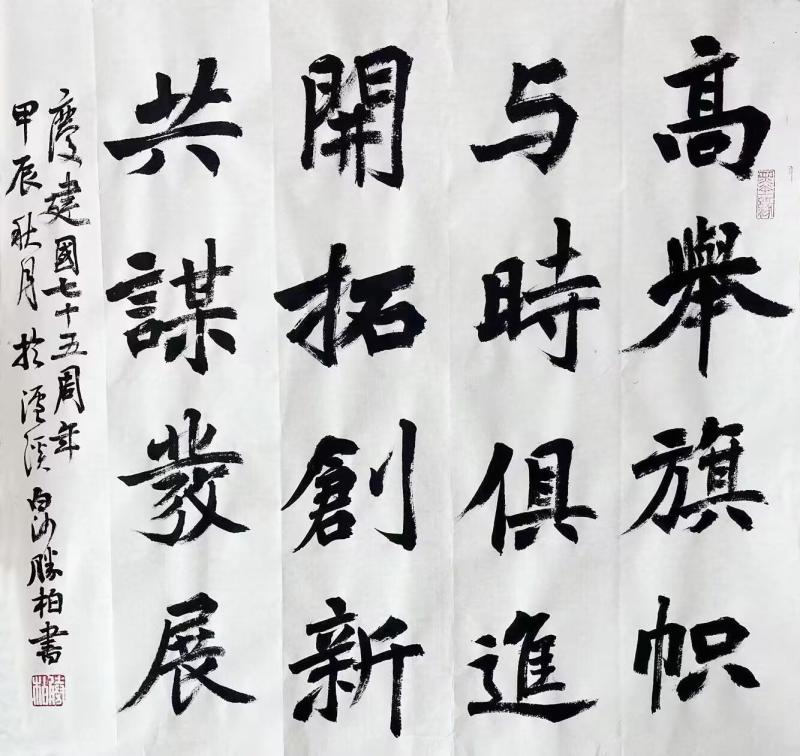 高舉旗帜
与時俱進
開拓創新
共謀發展
慶建國七十五周年
甲辰秋月於瀘溪白沙勝柏書
勝柏